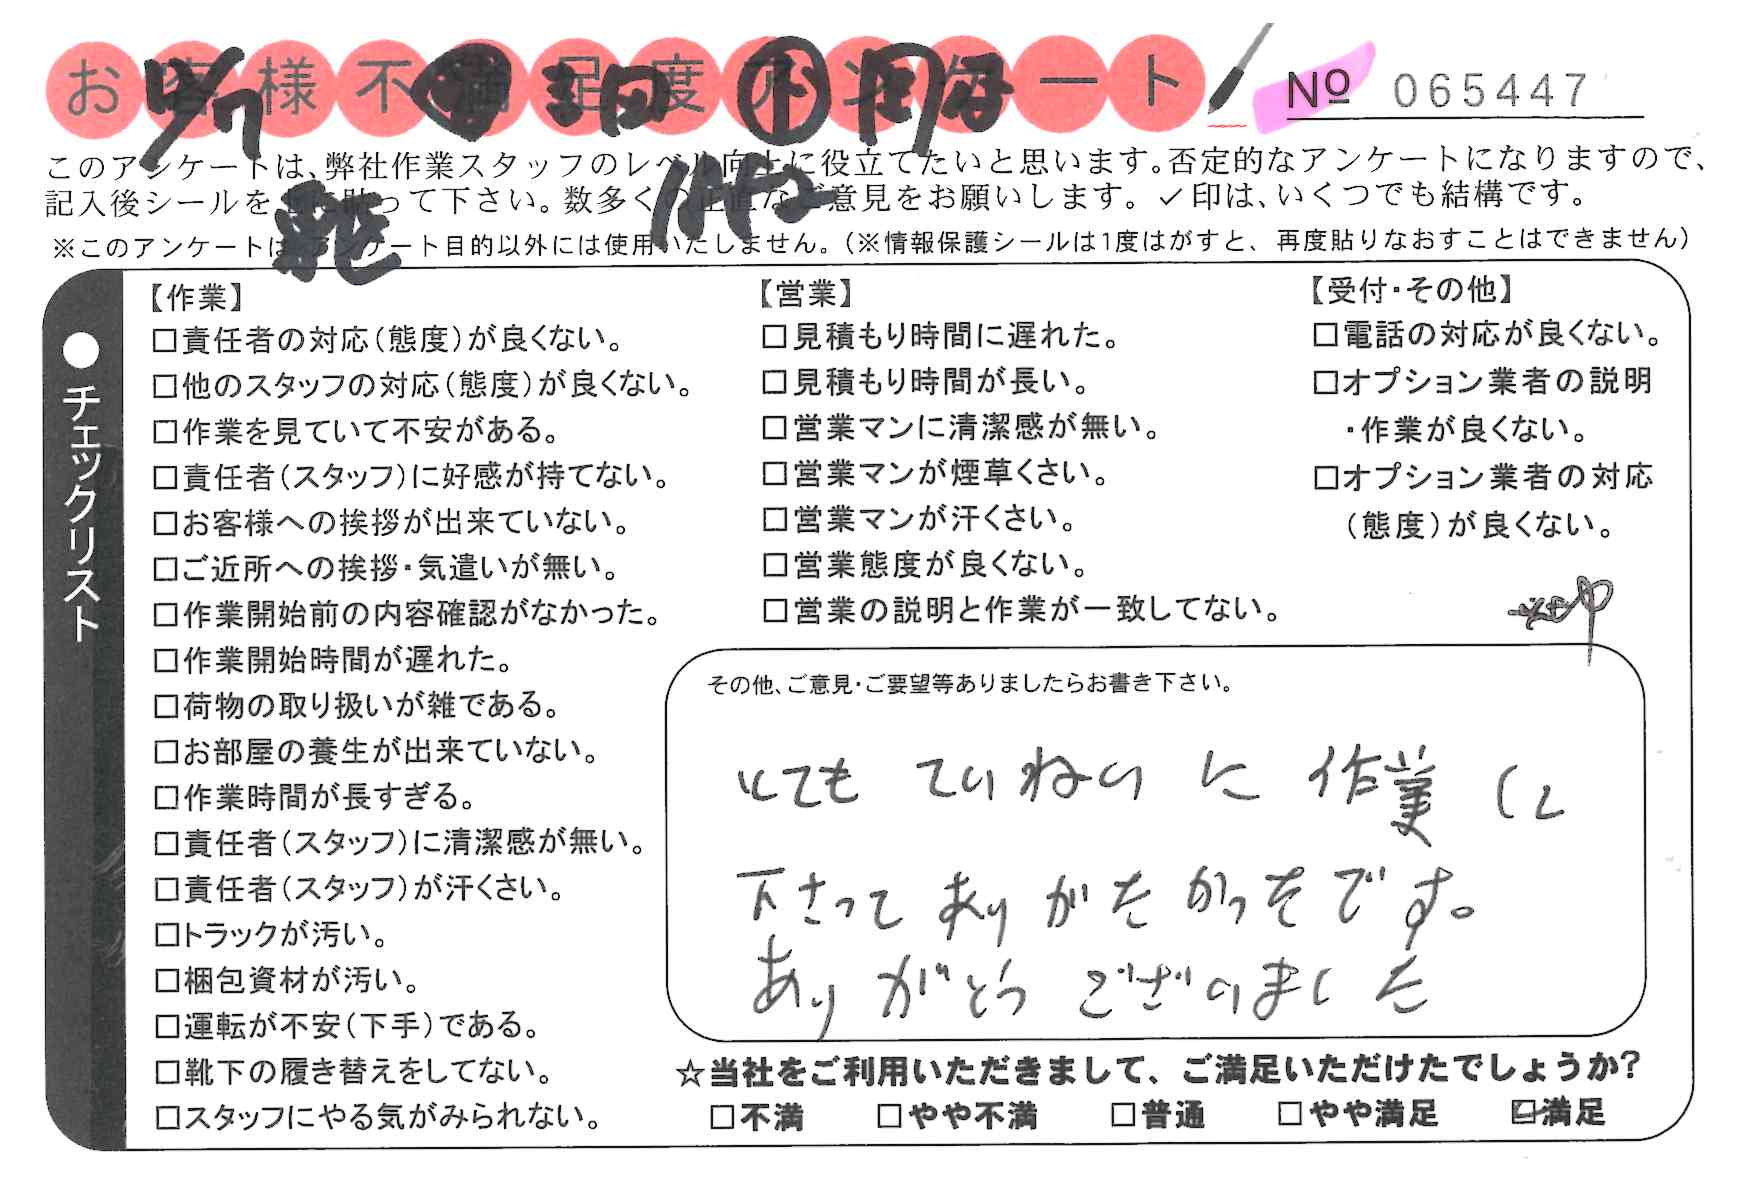 お客様不満足度アンケート
No 065447
このアンケートは、弊社作業スタッフのレベル向上に役立てたいと思います。否定的なアンケートになりますので、
記入後シールを上に貼って下さい。数多くの正直なご意見をお願いします。✓印は、いくつでも結構です。
※このアンケートは、アンケート目的以外には使用いたしません。(※情報保護シールは1度はがすと、再度貼りなおすことはできません)
●チェックリスト
【作業】
□責任者の対応(態度)が良くない。
□他のスタッフの対応(態度)が良くない。
□作業を見ていて不安がある。
□責任者(スタッフ)に好感が持てない。
□お客様への挨拶が出来ていない。
□ご近所への挨拶・気遣いが無い。
□作業開始前の内容確認がなかった。
□作業開始時間が遅れた。
□荷物の取り扱いが雑である。
□お部屋の養生が出来ていない。
□作業時間が長すぎる。
□責任者(スタッフ)に清潔感が無い。
□責任者(スタッフ)が汗くさい。
□トラックが汚い。
□梱包資材が汚い。
□運転が不安(下手)である。
□靴下の履き替えをしてない。
□スタッフにやる気がみられない。
【営業】
□見積もり時間に遅れた。
□見積もり時間が長い。
□営業マンに清潔感が無い。
□営業マンが煙草くさい。
□営業マンが汗くさい。
□営業態度が良くない。
□営業の説明と作業が一致してない。
【受付・その他】
□電話の対応が良くない。
□オプション業者の説明
・作業が良くない。
□オプション業者の対応
(態度)が良くない。
その他、ご意見・ご要望等ありましたらお書き下さい。
とてもていねいに作業して
下さってありがたかったです。
ありがとうございました
☆当社をご利用いただきまして、ご満足いただけたでしょうか?
□不満 □やや不満 □普通 □やや満足 ☑満足